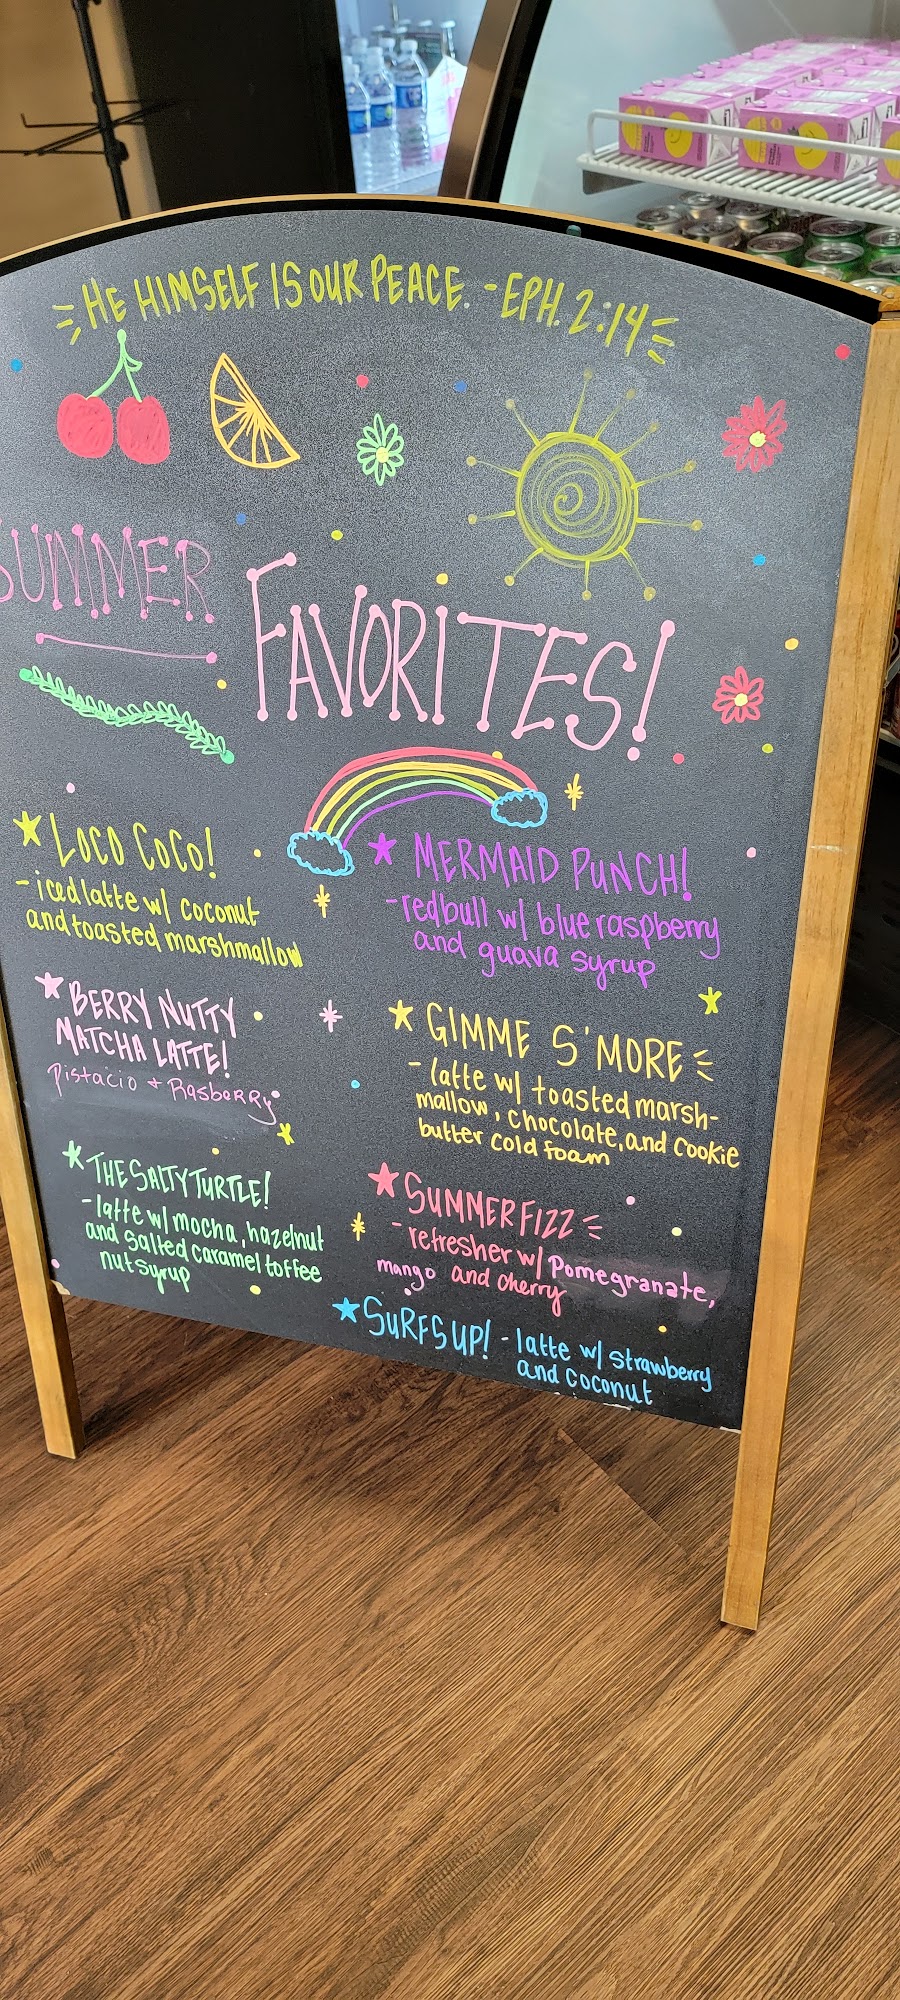 HE HIMSELF IS OUR PEACE. -EPH. 2:14
SUMMER
FAVORITES!
LOCO COCO!
- iced latte w/ coconut
and toasted marshmallow
BERRY NUTTY
MATCHA LATTE!
Pistacio + Rasberry
THE SALTY TURTLE!
- latte w/ mocha, hazelnut
and salted caramel toffee
nut syrup
MERMAID PUNCH!
- redbull w/ blue raspberry
and guava syrup
GIMME S'MORE
- latte w/ toasted marsh-
mallow, chocolate, and cookie
butter cold foam
SUMMER FIZZ
- refresher w/ pomegranate,
mango and cherry
SURFS UP! - latte w/ strawberry
and coconut